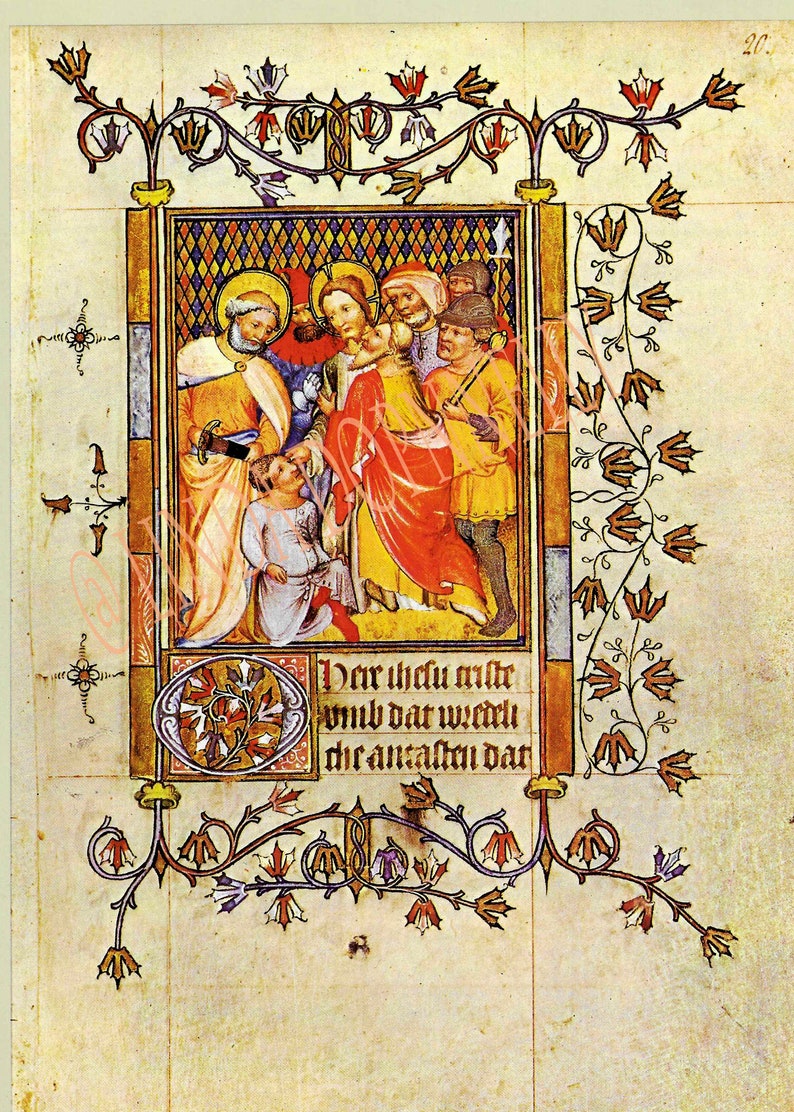 20.
O heir ihesu criste
vmb dat wredeli
che antasten dat